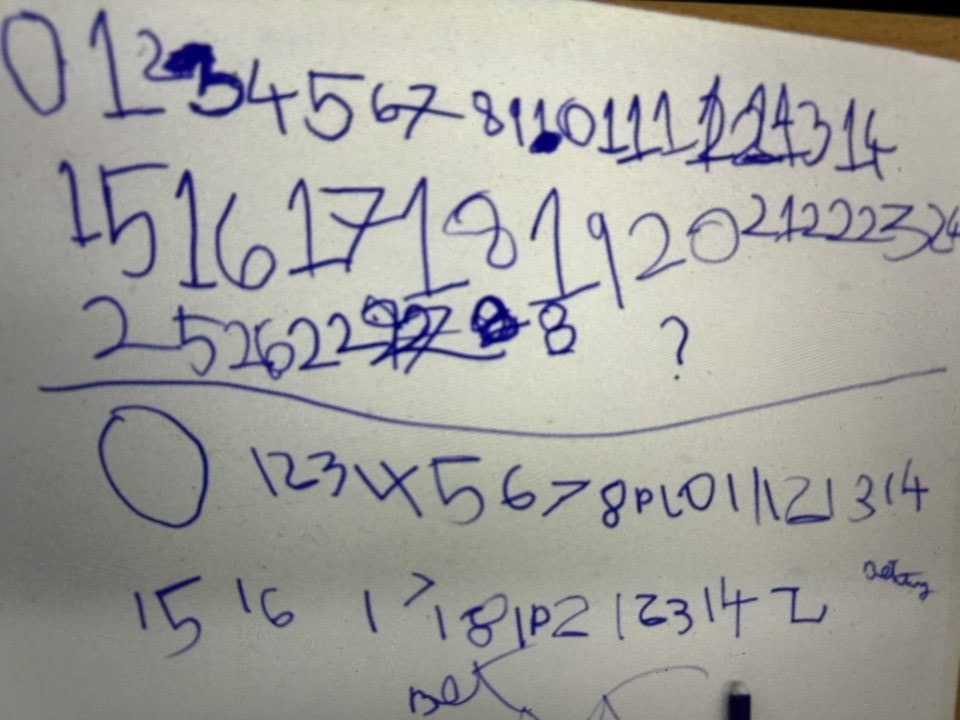 0 1 2 3 4 5 6 7 8 9 10 11 12 13 14
15 16 17 18 19 20 21 22 23 24
25 26 2 2 8 ?
0 1 2 3 4 5 6 7 8 9 10 11 12 13 14
15 16 17 18 19 2 1 2 3 14 2